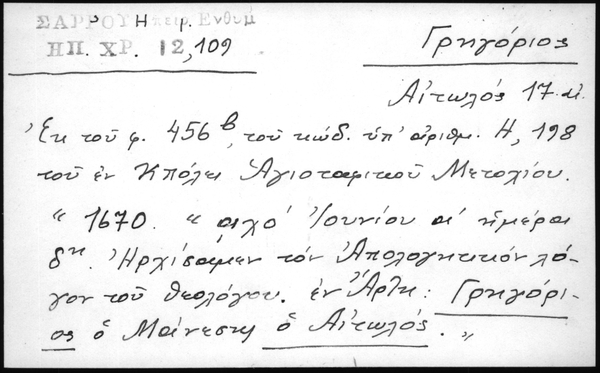 ΣΑΡΡΟΥ Ἠπειρ. Ἐνθυμ
ΗΠ. ΧΡ. 12, 109
Γρηγόριος
Αἰτωλός 17 αἰ.
Ἐκ τοῦ φ. 456β, τοῦ κώδ. ὑπ' ἀριθμ. Η, 198
τοῦ ἐν Κπόλει Ἁγιοταφιτικοῦ Μετοχίου.
" 1670. " αχο' Ἰουνίου α' ἡμέραι
δη. Ἠρχίσαμεν τὸν Ἀπολογητικόν λό-
γον τοῦ Θεολόγου. ἐν Ἄρτῃ: Γρηγόρι-
ος ὁ Μαίνεσης ὁ Αἰτωλός. "